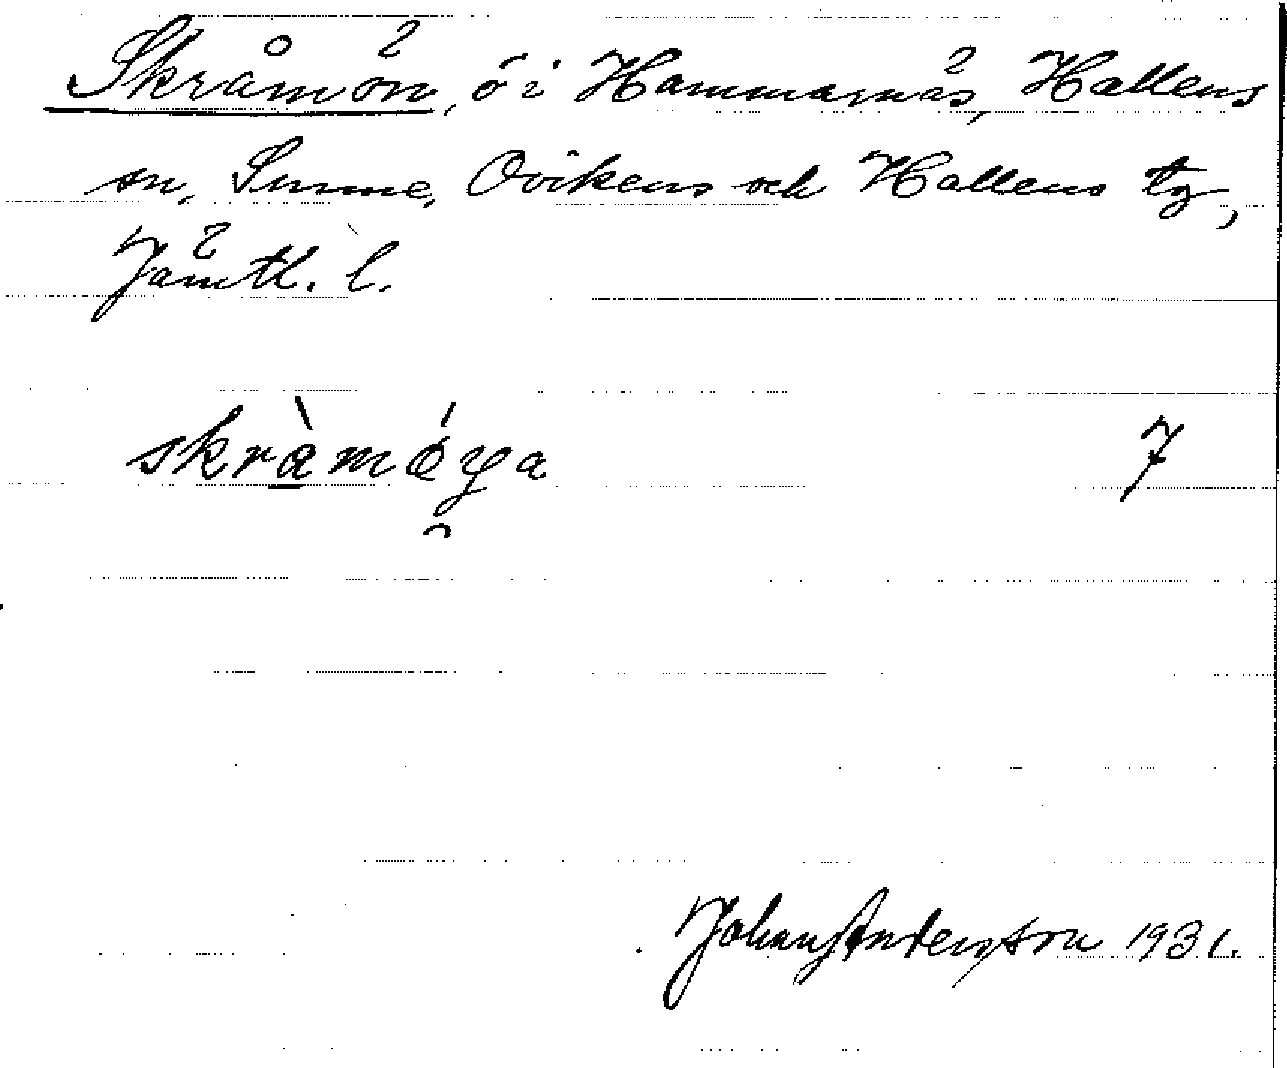 Skråmön, ö i Hammarnäs, Hallens
sn, Sunne, Ovikens och Hallens tg,
Jämtl. l.
skràmǿya 7
Johan Anderson 1931.